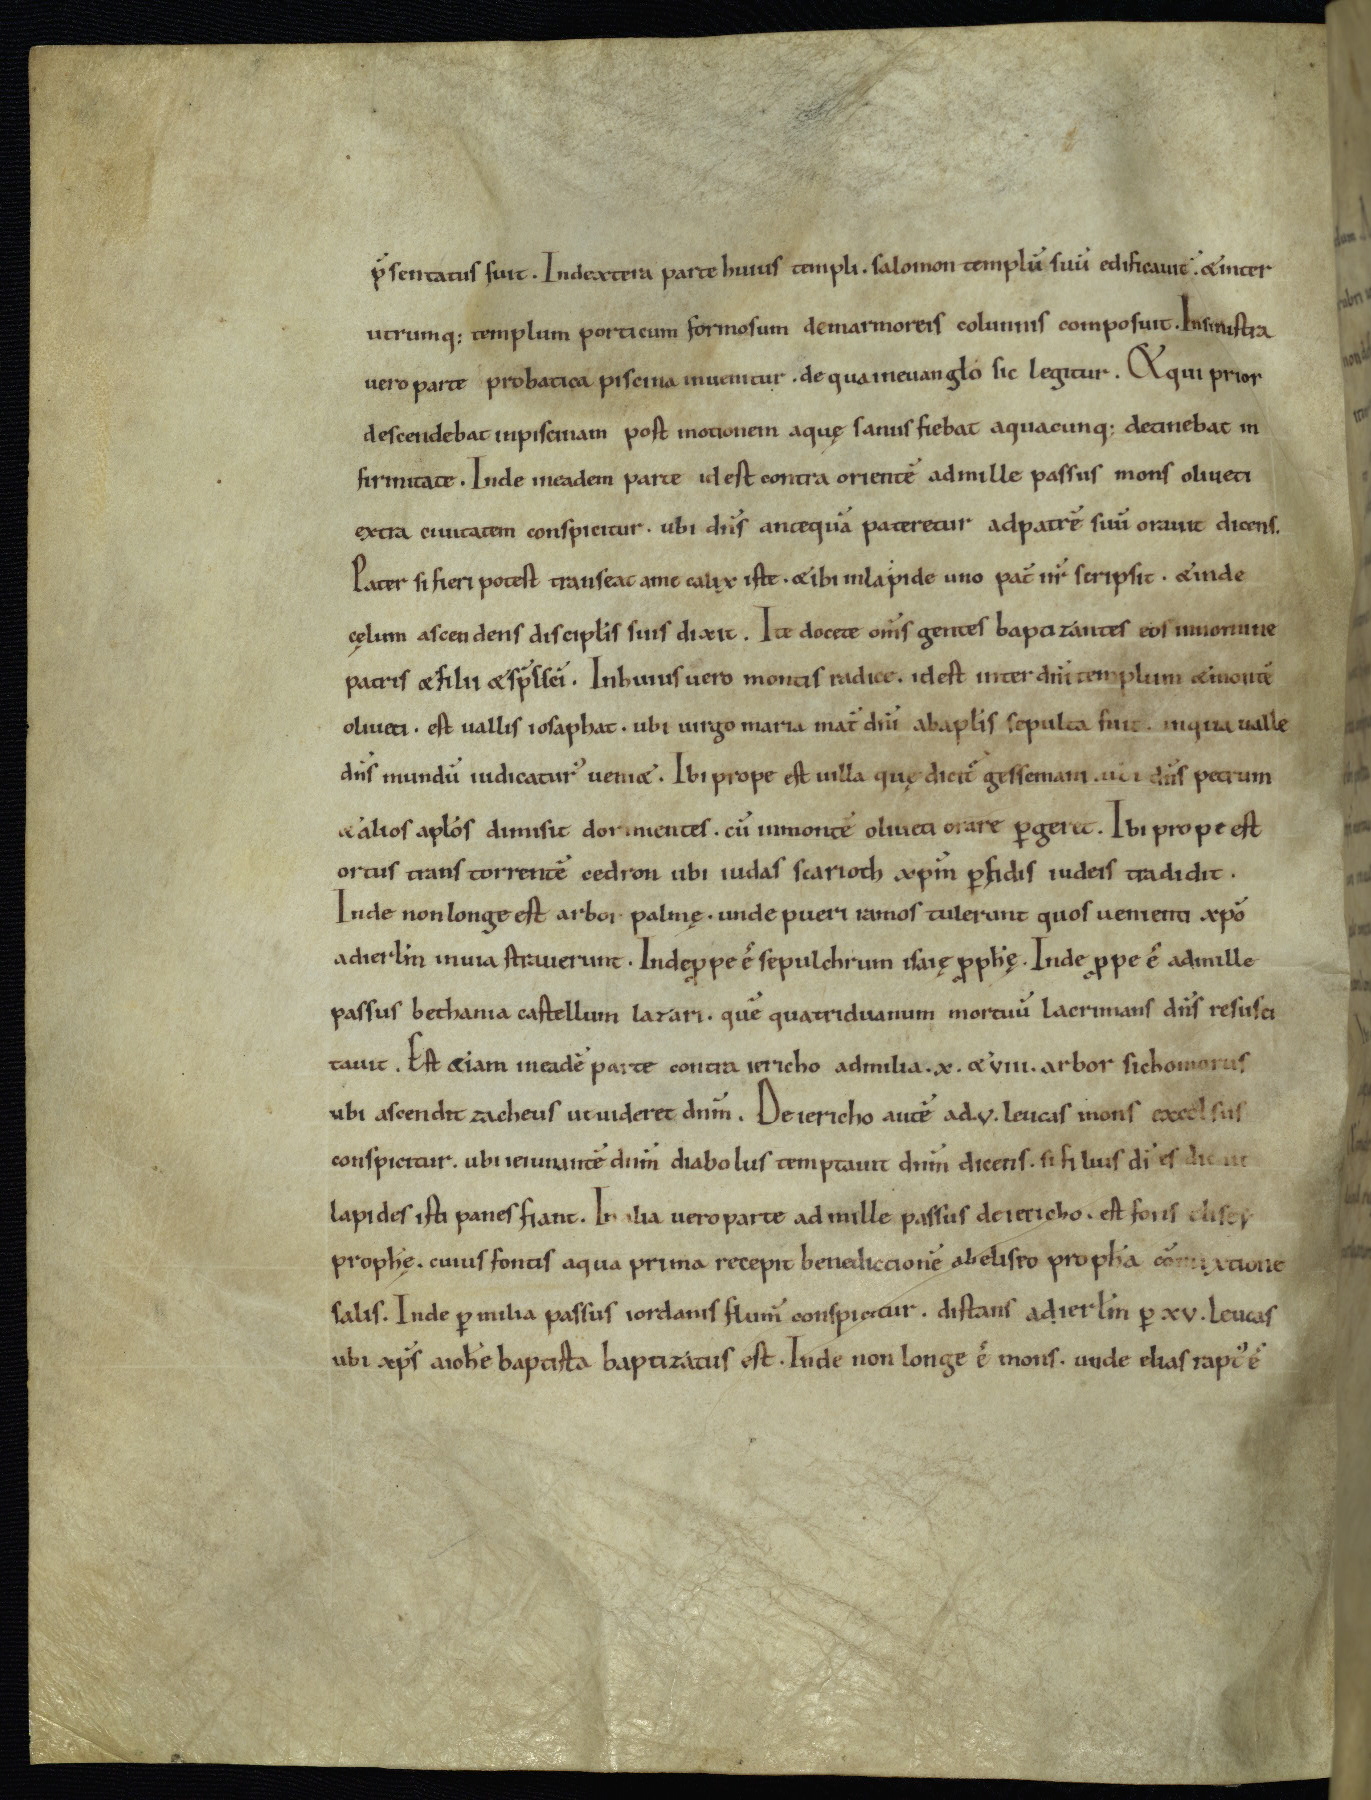 p̄sentatus fuit. Indextera parte huius templi. salomon templū suū edificauit. & inter
utrumq; templum porticum formosum demarmoreis columnis composuit. Insinistra
uero parte probatica piscina inuenitur. de qua ineuanglo sic legitur. Et qui prior
descendebat inpiscinam post motionem aquę sanus fiebat aquacunq; detinebat in
firmitate. Inde ineadem parte id est contra orientē admille passus mons oliueti
extra ciuitatem conspicitur. ubi dn̄s antequā pateretur adpatrē suū orauit dicens.
Pater si fieri potest transeat ame calix iste. & ibi inlapide uno pat̄ nr̄ scripsit. & inde
cęlum ascendens disciplīs suis dixit. Ite docete om̄s gentes baptizantes eos innomine
patris & filii & sp̄s sc̄i. Inhuius uero montis radice. id est inter dn̄i templum & montē
oliueti. est uallis iosaphat. ubi uirgo maria mat̄ dn̄i abaplīs sepulta fuit. inqua ualle
dn̄s mundū iudicaturꝰ ueni&. Ibi prope est uilla quę dicit̄ gessemani. ubi dn̄s petrum
& alios aplōs dimisit dormientes. cū inmontē oliueti orare ꝑgeret. Ibi prope est
ortus trans torrentē cedron ubi iudas scarioth xpm̄ ꝑfidis iudeis tradidit.
Inde nonlonge est arbor palmę. unde pueri ramos tulerunt quos uenienti xpō
adierlm̄ inuia strauerunt. Inde ꝓpe ē sepulchrum isaię ꝓphę̄. Inde ꝓpe ē admille
passus bethania castellum lazari. quē quatriduanum mortuū lacrimans dn̄s resusci
tauit. Est &iam ineadē parte contra iericho admilia. x. & viii. arbor sichomorus
ubi ascendit zacheus ut uideret dnm̄. De iericho autē ad. v. leucas mons excelsus
conspicitur. ubi ieiunantē dnm̄ diabolus temptauit dnm̄ dicens. si filius dī es dic ut
lapides isti panes fiant. In alia uero parte ad mille passus de iericho. est fons elisey
prophę̄. cuius fontis aqua prima recepit benediccionē abeliseo prophā cōmixtione
salis. Inde ꝑ milia passus iordanis flum̄ conspicitur. distans adierlm̄ ꝑ xv. leucas
ubi xpс̄ aiohē baptista baptizatus est. Inde non longe ē mons. unde elias raptꝰ ē